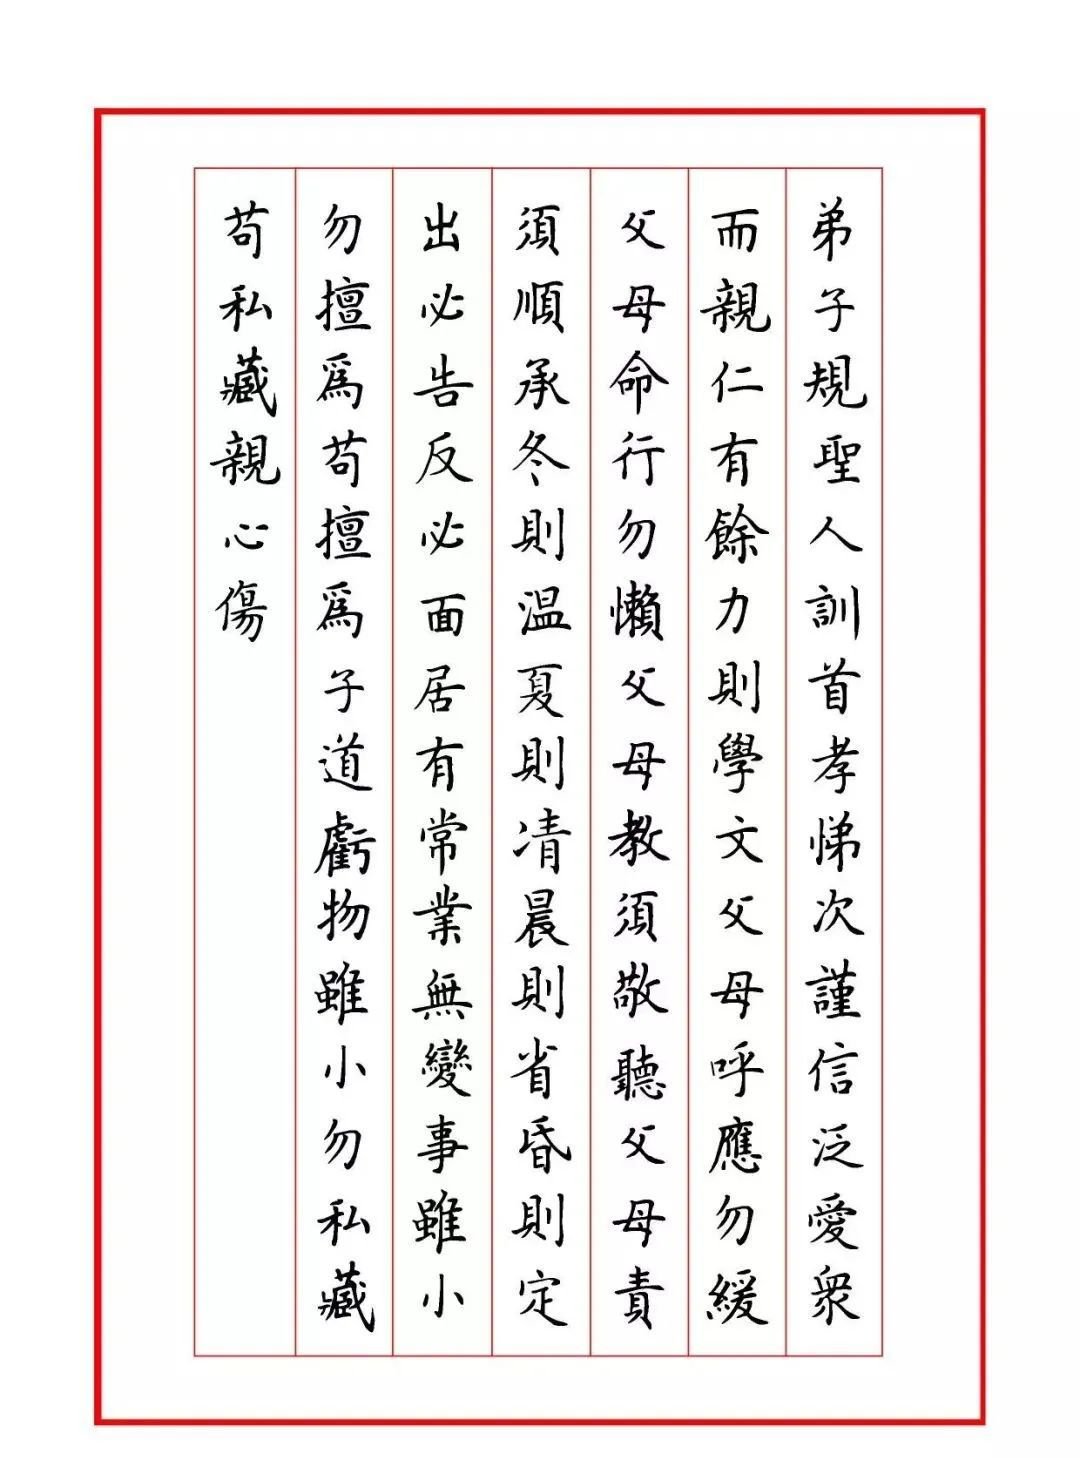 弟子規聖人訓首孝悌次謹信泛愛衆
而親仁有餘力則學文父母呼應勿緩
父母命行勿懶父母教須敬聽父母責
須順承冬則温夏則凊晨則省昏則定
出必告反必面居有常業無變事雖小
勿擅爲苟擅爲子道虧物雖小勿私藏
苟私藏親心傷